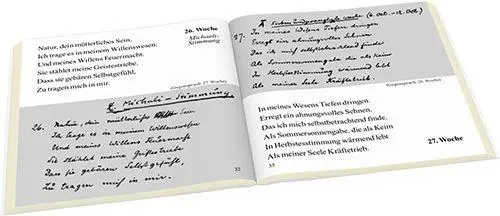 26. Woche
Michaeli-
Stimmung
Natur, dein mütterliches Sein,
Ich trage es in meinem Willenswesen;
Und meines Willens Feuermacht,
Sie stählet meine Geistestriebe,
Dass sie gebären Selbstgefühl,
Zu tragen mich in mir.
(Gegenspruch: 27. Woche)
Michaeli-Stimmung
26. Natur, dein mütterliches Sein
Ich trage es in meinem Willenswesen
Und meines Willens Feuermacht
Sie stählet meine Geistestriebe
Dass sie gebären Selbstgefühl,
Zu tragen mich in mir.
32
(6. Oct. - 12. Oct.)
27. In meines Wesens Tiefen dringen
Erregt ein ahnungsvolles Sehnen
Das ich mich selbstbetrachtend finde
Als Sommersonnengabe, die als Keim
In Herbstesstimmung wärmend lebt
Als meiner Seele Kräftetrieb.
(Gegenspruch: 26. Woche)
In meines Wesens Tiefen dringen:
Erregt ein ahnungsvolles Sehnen,
Das ich mich selbstbetrachtend finde,
Als Sommersonnengabe, die als Keim
In Herbstesstimmung wärmend lebt
Als meiner Seele Kräftetrieb.
27. Woche
33